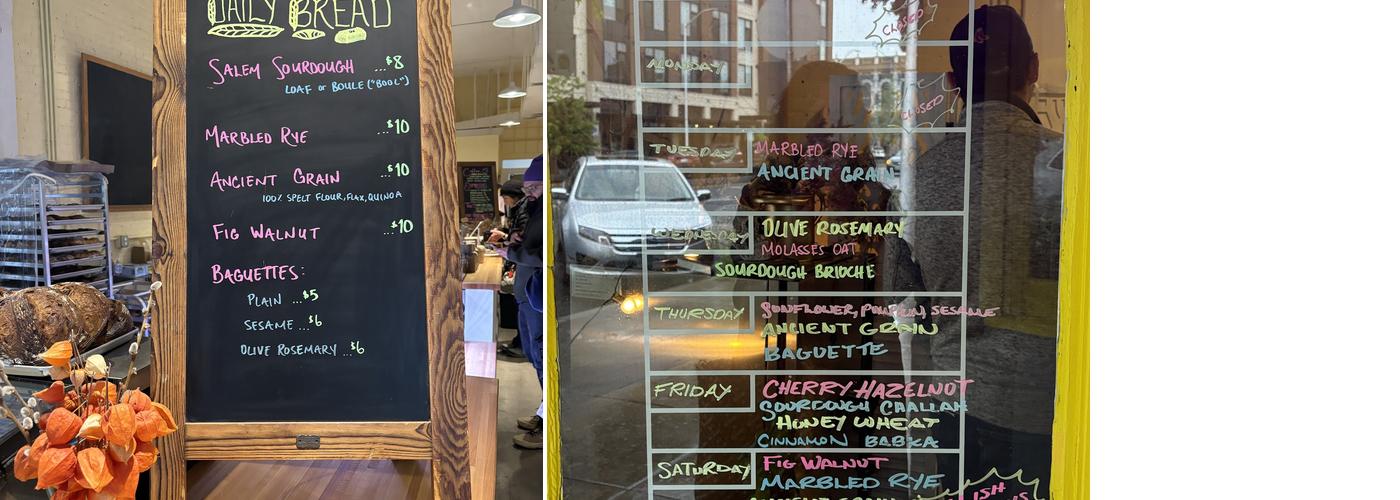 DAILY BREAD
SALEM SOURDOUGH ...$8
LOAF or BOULE ("BOOL")
MARBLED RYE ...$10
ANCIENT GRAIN ...$10
100% SPELT FLOUR, FLAX, QUINOA
FIG WALNUT ...$10
BAGUETTES:
PLAIN ...$5
SESAME ...$6
OLIVE ROSEMARY ...$6
CLOSED
MONDAY
CLOSED
TUESDAY MARBLED RYE
ANCIENT GRAIN
WEDNESDAY OLIVE ROSEMARY
MOLASSES OAT
SOURDOUGH BRIOCHE
THURSDAY SUNFLOWER, PUMPKIN, SESAME
ANCIENT GRAIN
BAGUETTE
FRIDAY CHERRY HAZELNUT
SOURDOUGH CHALLAH
HONEY WHEAT
CINNAMON BABKA
SATURDAY FIG WALNUT
MARBLED RYE